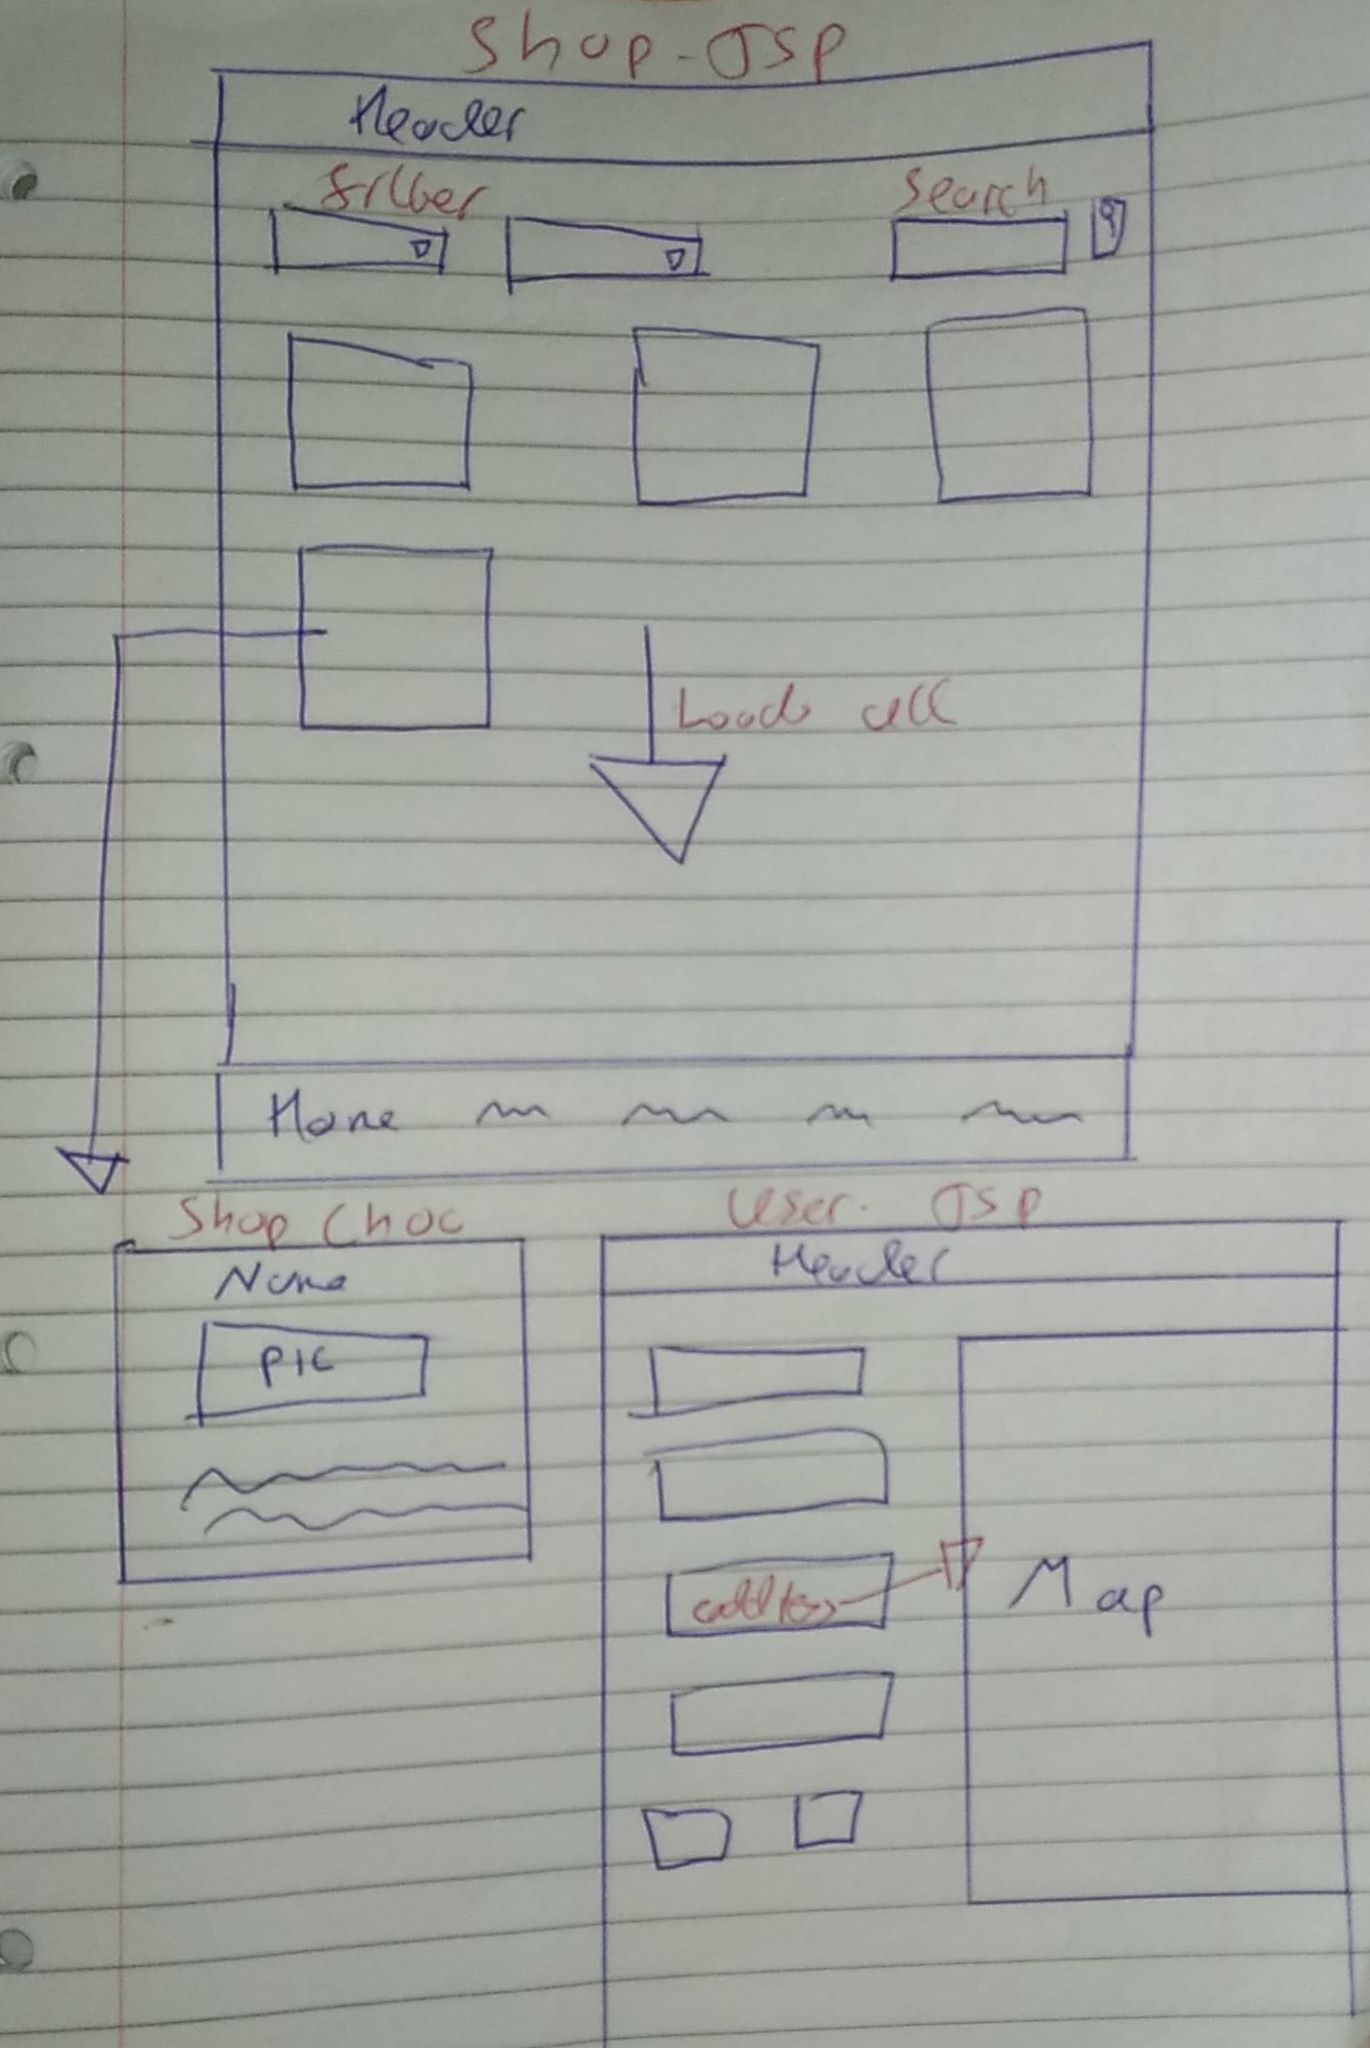 Shop-JSP
Header
filter
Search
Loads all
Home
Shop Choc
Name
PIC
User. JSP
Header
address
Map